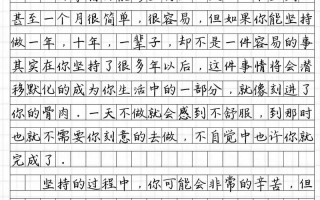 甚至一个月很简单，很容易，但如果你能坚持
做一年，十年，一辈子，却不是一件容易的事
其实在你坚持了很多年以后，这件事情将会潜
移默化的成为你生活中的一部分，就像刻进了
你的骨肉．一天不做就会感到不舒服，到那时
也就不需要你刻意的去做，不自觉中也许你就
完成了．
坚持的过程中，你可能会非常的辛苦，但